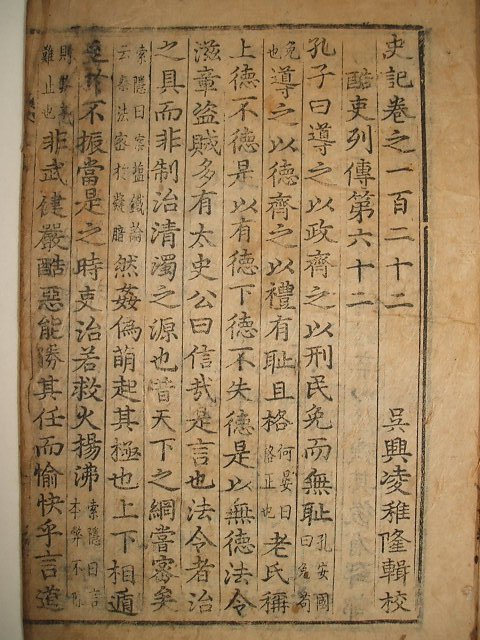 史記卷之一百二十二 吳興凌稚隆輯校
酷吏列傳第六十二
孔子曰導之以政齊之以刑民免而無耻孔安國曰免苟
免也導之以德齊之以禮有耻且格何晏曰格正也老氏稱
上德不德是以有德下德不失德是以無德法令
滋章盜賊多有太史公曰信哉是言也法令者治
之具而非制治清濁之源也昔天下之網嘗密矣
索隱曰案鹽鐵論云秦法密於凝脂然姦僞萌起其極也上下相遁
至於不振當是之時吏治若救火揚沸索隱曰言本弊不除
則其末難止也非武健嚴酷惡能勝其任而愉快乎言道